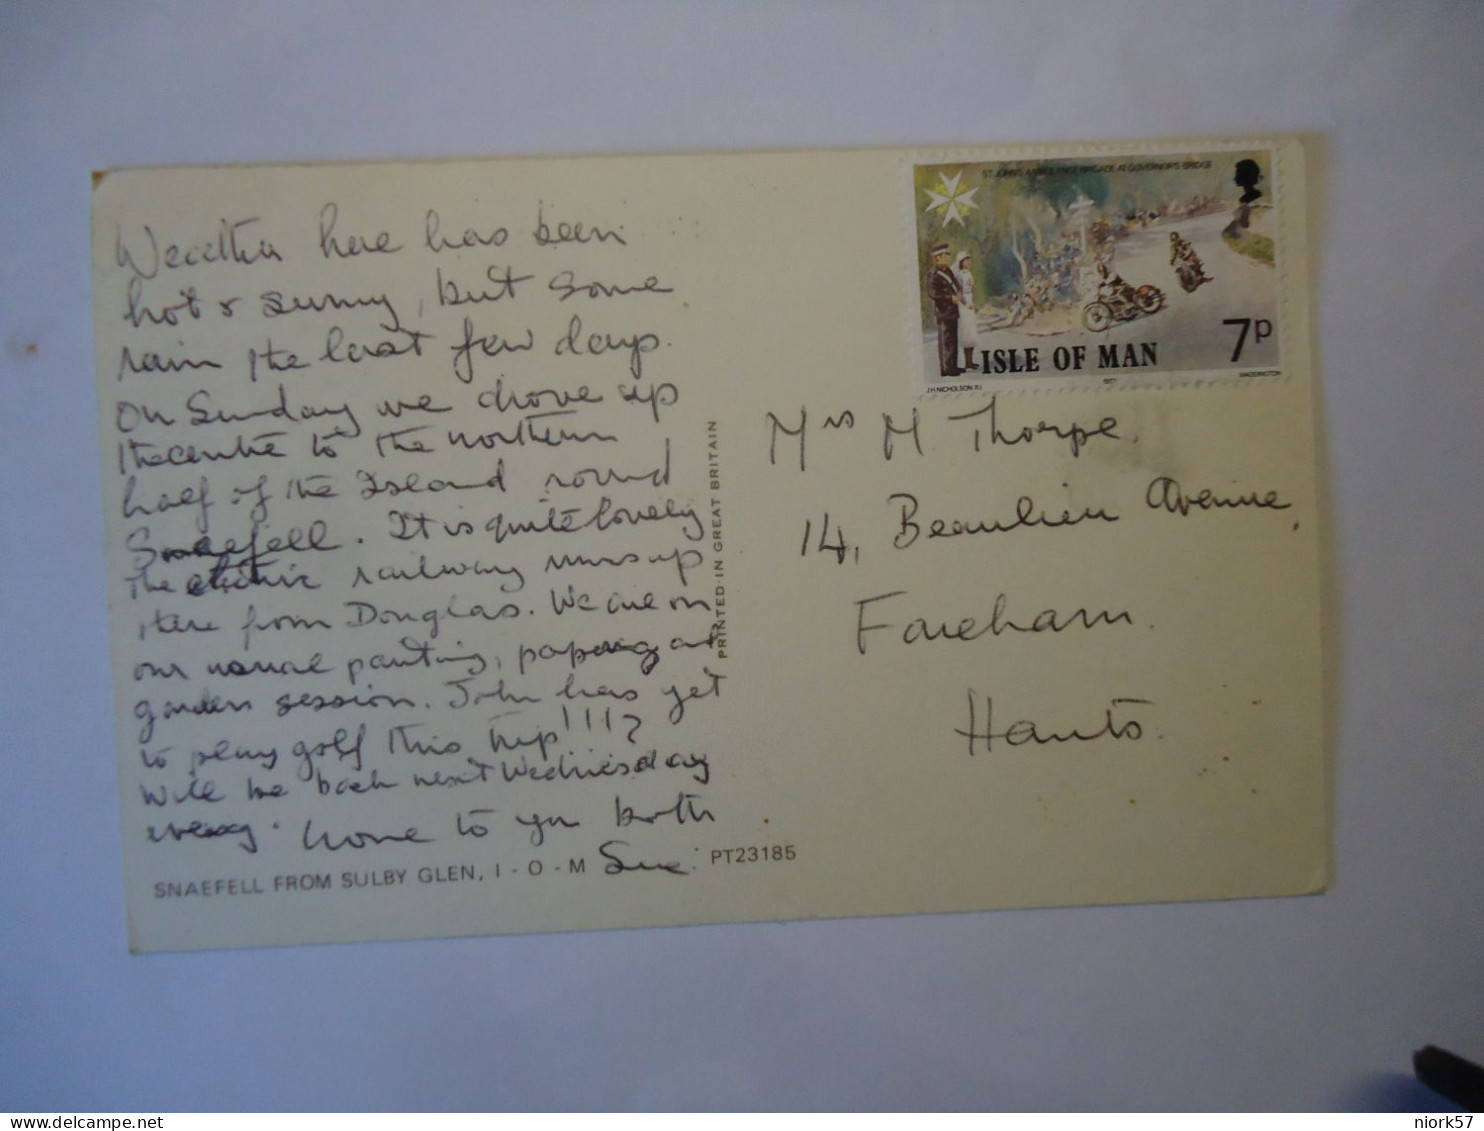 Weather here has been
hot & sunny, but some
rain the last few days.
On Sunday we drove up
the centre to the northern
half of the Island round
Snaefell. It is quite lovely
The electric railway runs up
there from Douglas. We are on
our usual painting, papering and
garden session. John has yet
to play golf this trip!!!?
Will be back next Wednesday
evening. Love to you both
Sue.
SNAEFELL FROM SULBY GLEN, I - O - M
PT23185
PRINTED IN GREAT BRITAIN
ST. JOHN'S AMBULANCE BRIGADE AT GOVERNOR'S BRIDGE
ISLE OF MAN
7p
J.H. NICHOLSON R.I.
1977
WADDINGTON
Mrs M Thorpe.
14, Beaulieu Avenue,
Fareham.
Hants.
niork57